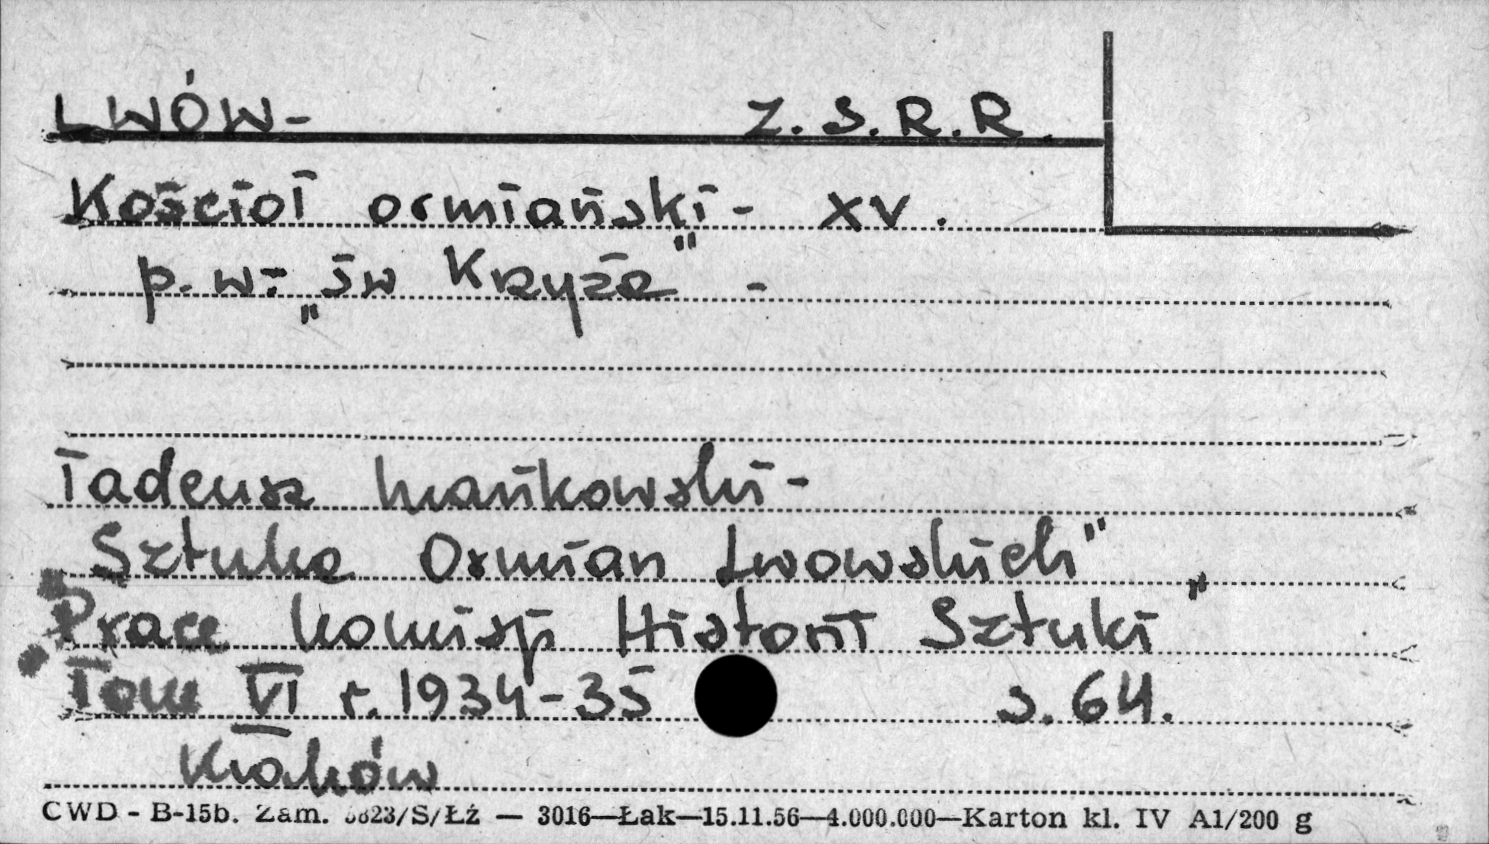 LWÓW- Z.S.R.R.
Kościoł ormiański - XV.
p. w: „św Krzyża" -
Tadeusz Mańkowski -
Sztuka Ormian Lwowskich"
„Prace Komisji Historii Sztuki"
Tom VI r. 1934-35 s. 64.
Kraków
CWD - B-15b. Zam. 3823/S/Łź — 3016—Łak—15.11.56—4.000.000—Karton kl. IV A1/200 g